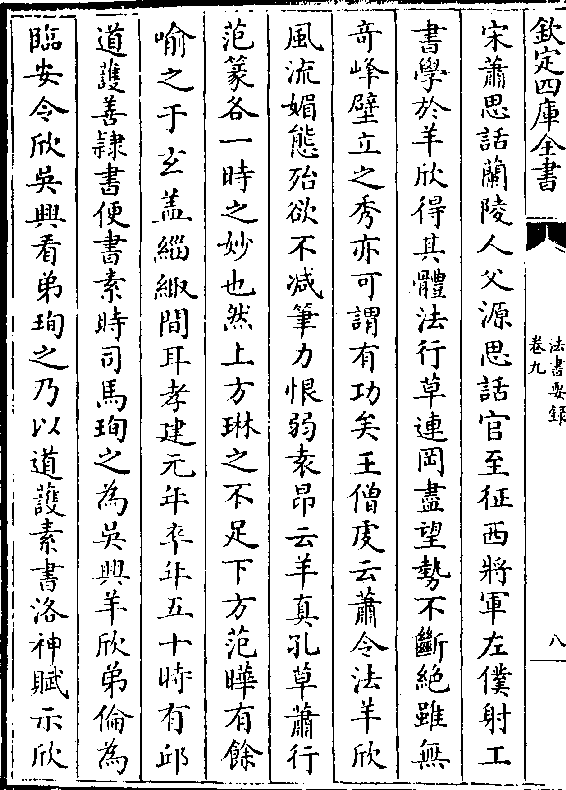 欽定四庫全書
法書要錄
卷九
八
宋蕭思話蘭陵人父源思話官至征西將軍左僕射工
書學於羊欣得其體法行草連岡盡望勢不斷絕雖無
竒峰壁立之秀亦可謂有功矣王僧䖍云蕭令法羊欣
風流媚態殆欲不减筆力恨弱袁昂云羊真孔草蕭行
范篆各一時之妙也然上方琳之不足下方范曄有餘
喻之于玄盖緇緅間耳孝建元年卒年五十時有邱
道護善隷書便書素時司馬珣之為吳興羊欣弟倫為
臨安令欣吳興看弟珣之乃以道護素書洛神賦示欣